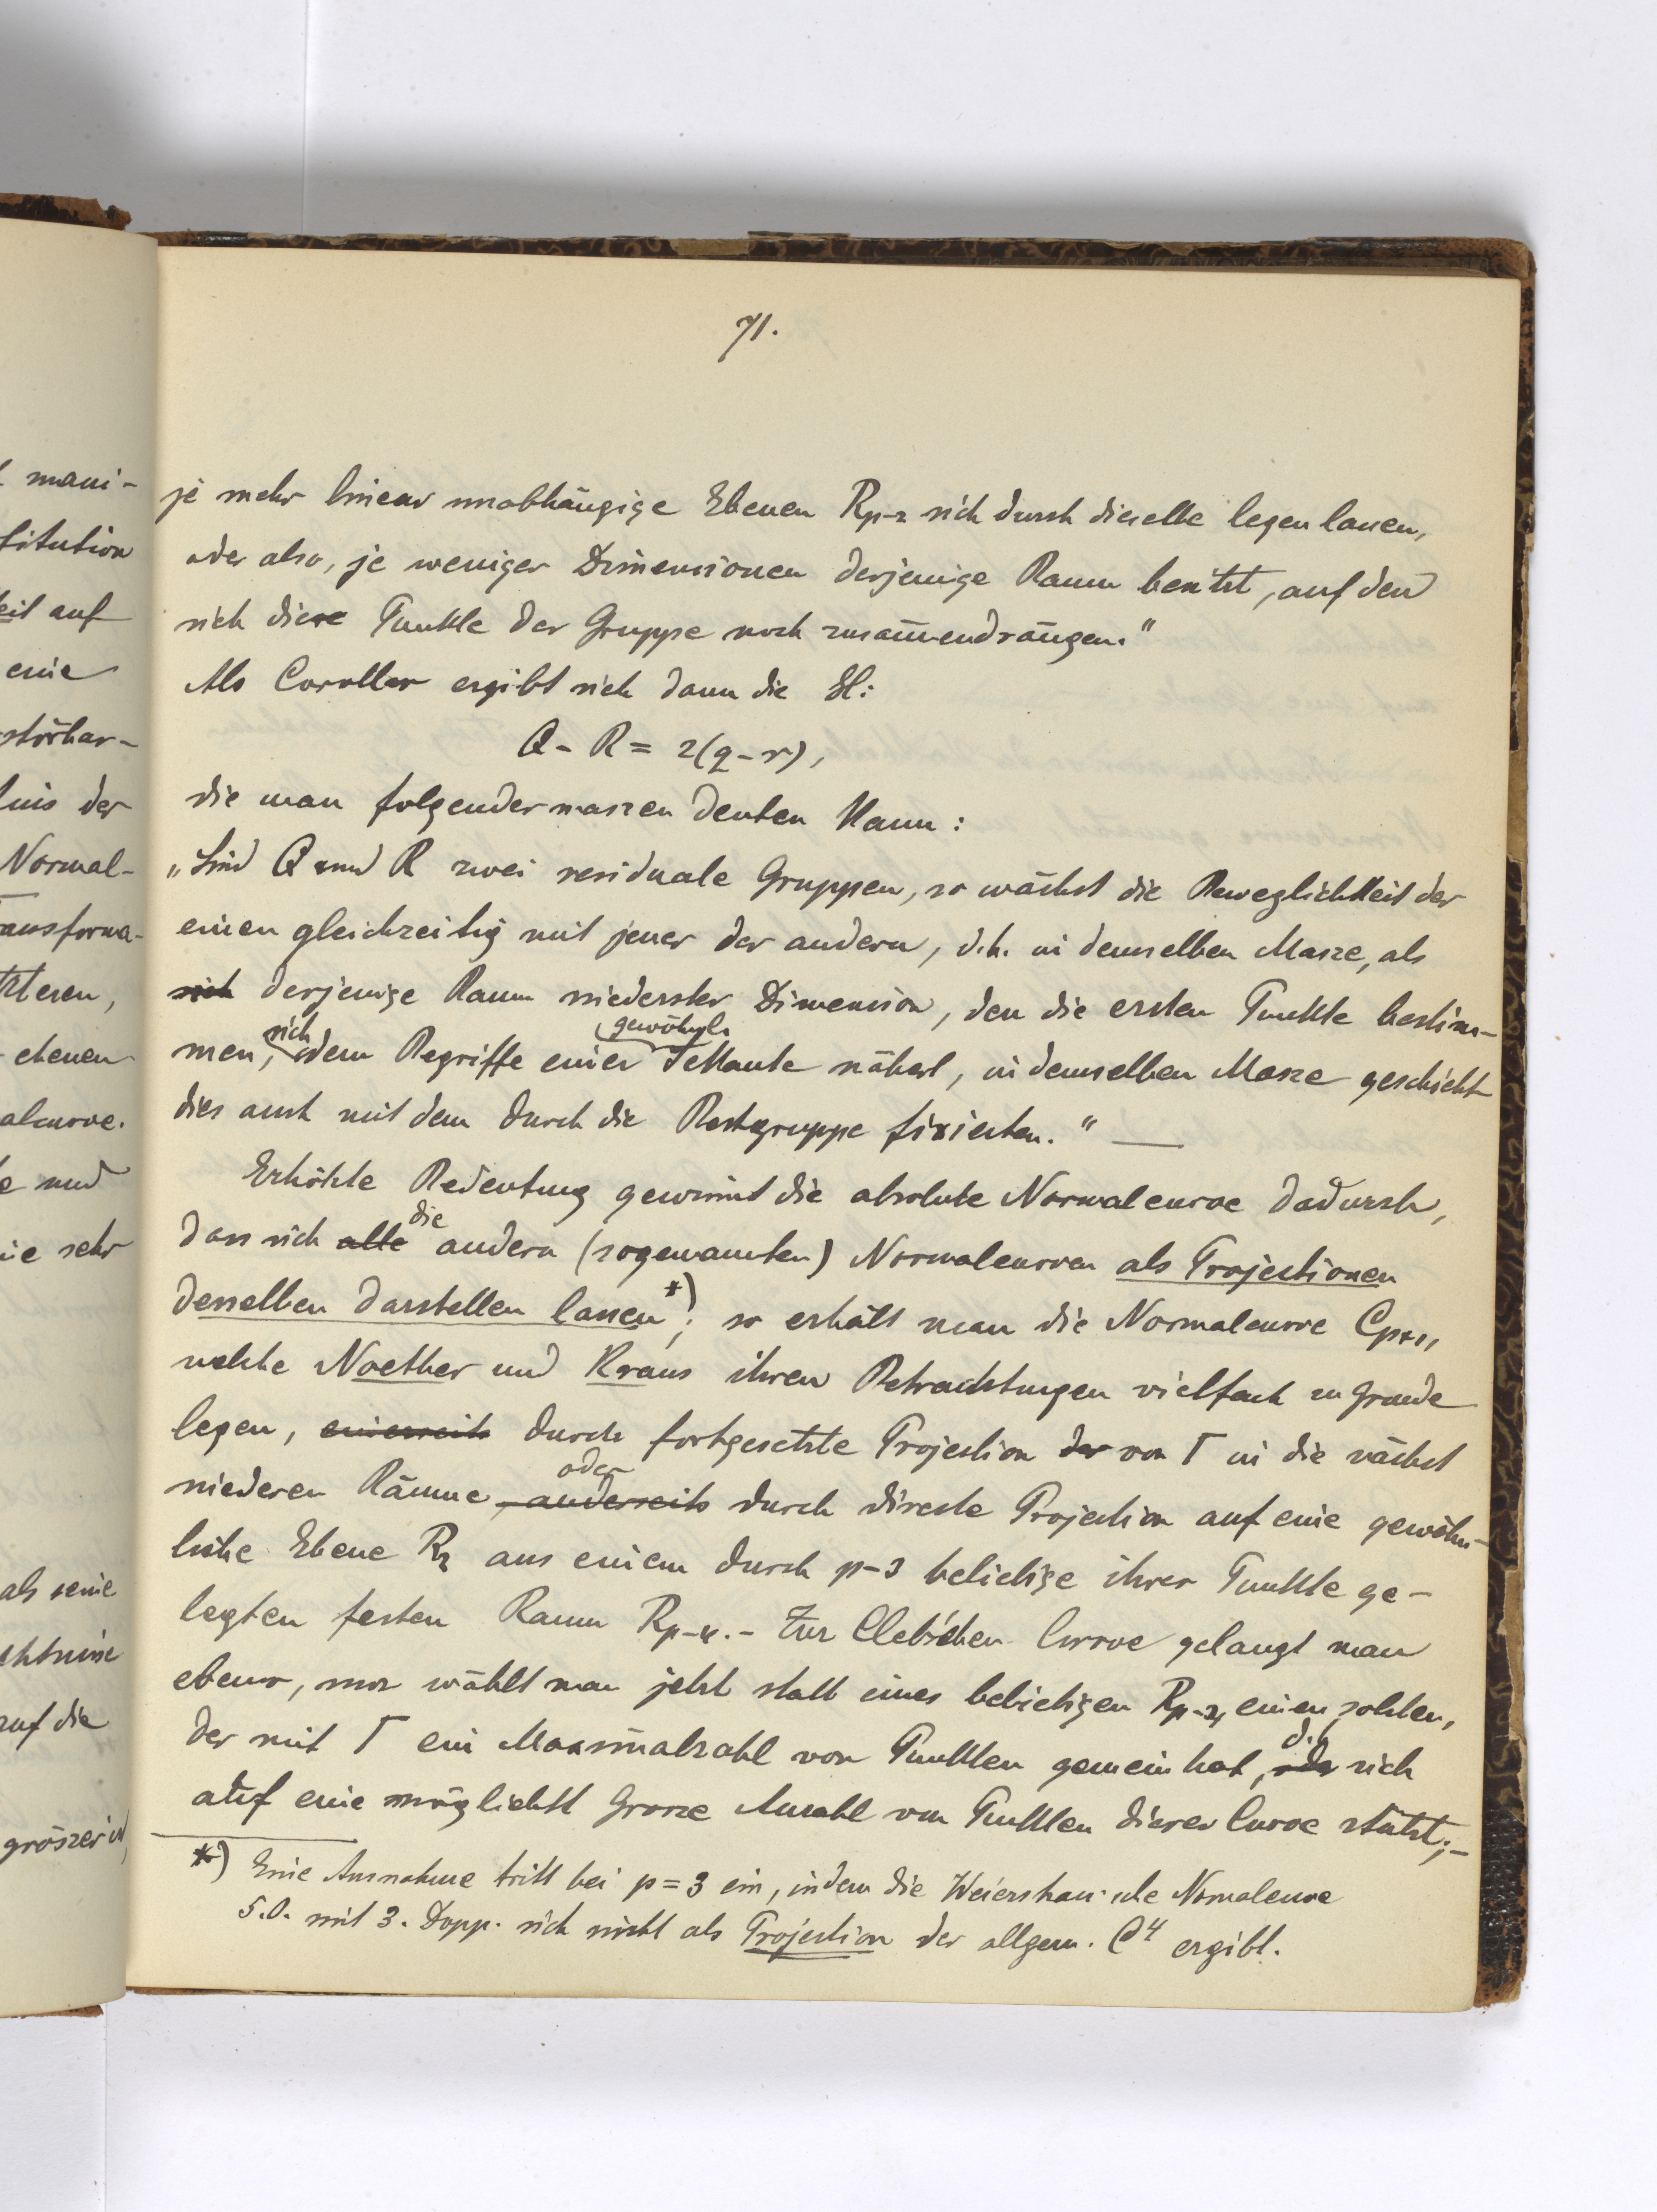 71.
je mehr linear unabhängige Ebenen Rp-2 sich durch dieselbe legen lassen,
oder also, je weniger Dimensionen derjenige Raum besitzt, auf den
sich diese Punkte der Gruppe noch zusam̅endrängen."
Als Corollar ergibt sich dann die Gl:
Q - R = 2(q-r),
die man folgendermaszen deuten kann:
„Sind Q und R zwei residuale Gruppen, so wächst die Beweglichkeit der
einen gleichzeitig mit jener der andern, d.h. in demselben Masze, als
sich derjenige Raum niederster Dimension, den die ersten Punkte bestim-
men, sich dem Begriffe einer gewöhnl. Sekante nähert, in demselben Masze geschieht
dies auch mit dem durch die Restgruppe fixierten." —
Erhöhte Bedeutung gewinnt die absolute Normalcurve dadurch,
dass sich alle die andern (sogenannten) Normalcurven als Projectionen
derselben darstellen lassen*); so erhält man die Normalcurve Cp+1,
welche Noether und Kraus ihren Betrachtungen vielfach zu Grunde
legen, einerseits durch fortgesetzte Projection der von Γ in die nächst
niederen Räume, anderseits oder durch directe Projection auf eine gewöhn-
liche Ebene R2 aus einem durch p-3 beliebige ihrer Punkte ge-
legten festen Raum Rp-4. - Zur Clebschen Curve gelangt man
ebenso, nur wählt man jetzt statt eines beliebigen Rp-4, einen solchen,
der mit Γ ein Maximalzahl von Punkten gemein hat, oder d.h. sich
auf eine möglichst grosze Anzahl von Punkten dieser Curve stützt; -
*) Eine Ausnahme tritt bei p = 3 ein, indem die Weierstrass'sche Normalcurve
5.O. mit 3. Dopp. sich nicht als Projection der allgem. C4 ergibt.